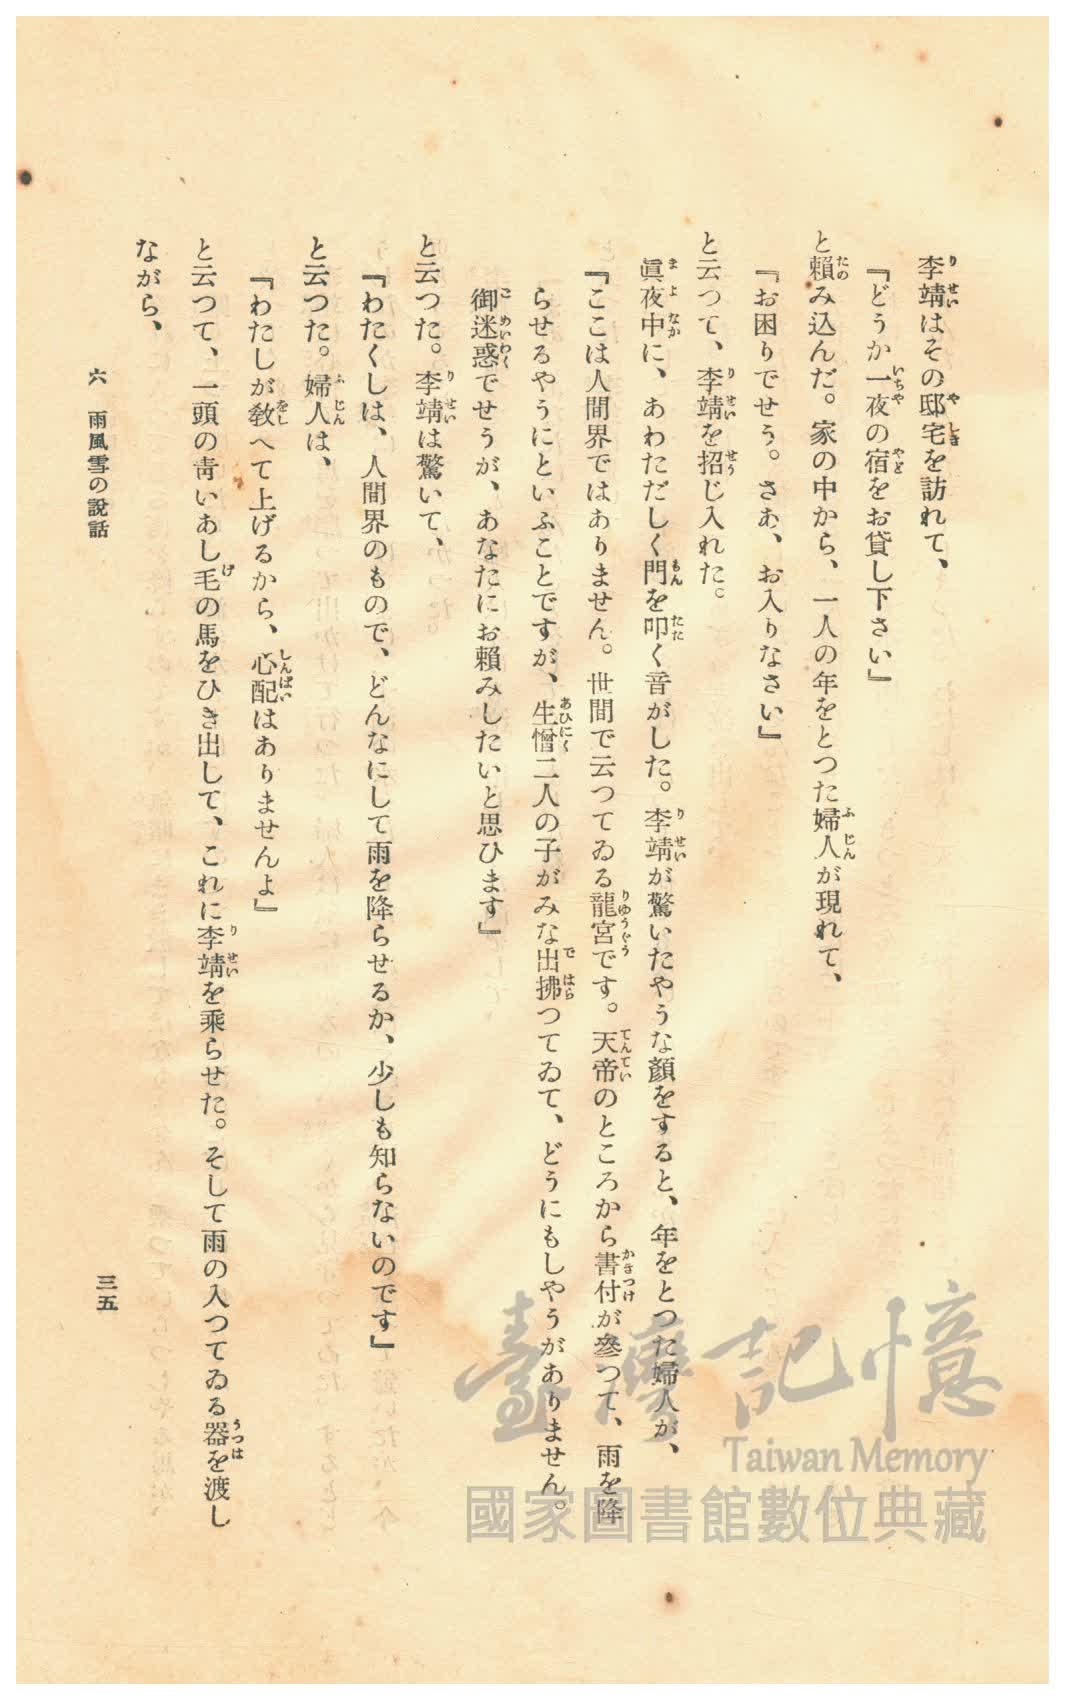 李靖はその邸宅を訪れて、
『どうか一夜の宿をお貸し下さい』
と賴み込んだ。家の中から、一人の年をとつた婦人が現れて、
『お困りでせう。さあ、お入りなさい』
と云つて、李靖を招じ入れた。
眞夜中に、あわただしく門を叩く音がした。李靖が驚いたやうな顏をすると、年をとつた婦人が、
『ここは人間界ではありません。世間で云つてゐる龍宮です。天帝のところから書付が參つて、雨を降
らせるやうにといふことですが、生憎二人の子がみな出拂つてゐて、どうにもしやうがありません。
御迷惑でせうが、あなたにお賴みしたいと思ひます』
と云つた。李靖は驚いて、
『わたくしは、人間界のもので、どんなにして雨を降らせるか、少しも知らないのです』
と云つた。婦人は、
『わたしが敎へて上げるから、心配はありませんよ』
と云つて、一頭の靑いあし毛の馬をひき出して、これに李靖を乘らせた。そして雨の入つてゐる器を渡し
ながら、
六 雨風雪の說話
三五
臺灣記憶
Taiwan Memory
國家圖書館數位典藏